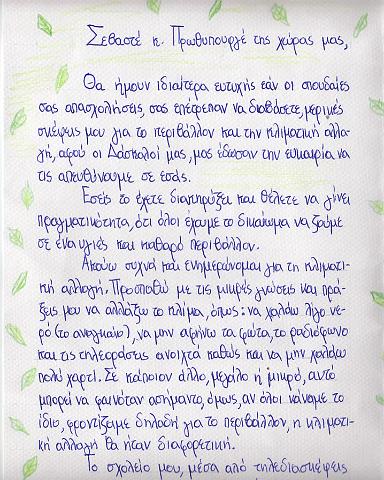 Σεβαστέ κ. Πρωθυπουργέ της χώρας μας,
Θα ήμουν ιδιαίτερα ευτυχής εάν οι σπουδαίες
σας απασχολήσεις, σας επέτρεπαν να διαβάσετε, μερικές
σκέψεις μου για το περιβάλλον και την κλιματική αλλα-
γή, αφού οι Δάσκαλοί μας, μας έδωσαν την ευκαιρία να
τις απευθύνουμε σε εσάς.
Εσείς το έχετε διακηρύξει και θέλετε να γίνει
πραγματικότητα, ότι όλοι έχουμε το δικαίωμα να ζούμε
σε ένα υγιές και καθαρό περιβάλλον.
Ακούω συχνά και ενημερώνομαι για τη κλιματι-
κή αλλαγή. Προσπαθώ με τις μικρές γνώσεις και πρά-
ξεις μου να αλλάξω το κλίμα, όπως: να χαλάω λίγο νε-
ρό (το αναγκαίο), να μην αφήνω τα φώτα, το ραδιόφωνο
και τις τηλεοράσεις ανοιχτά καθώς και να μην χαλάω
πολύ χαρτί. Σε κάποιον άλλο, μεγάλο ή μικρό, αυτό
μπορεί να φαινόταν ασήμαντο, όμως, αν όλοι κάναμε το
ίδιο, φροντίζαμε δηλαδή για το περιβάλλον, η κλιματι-
κή αλλαγή θα ήταν διαφορετική.
Το σχολείο μου, μέσα από τηλεδιασκέψεις